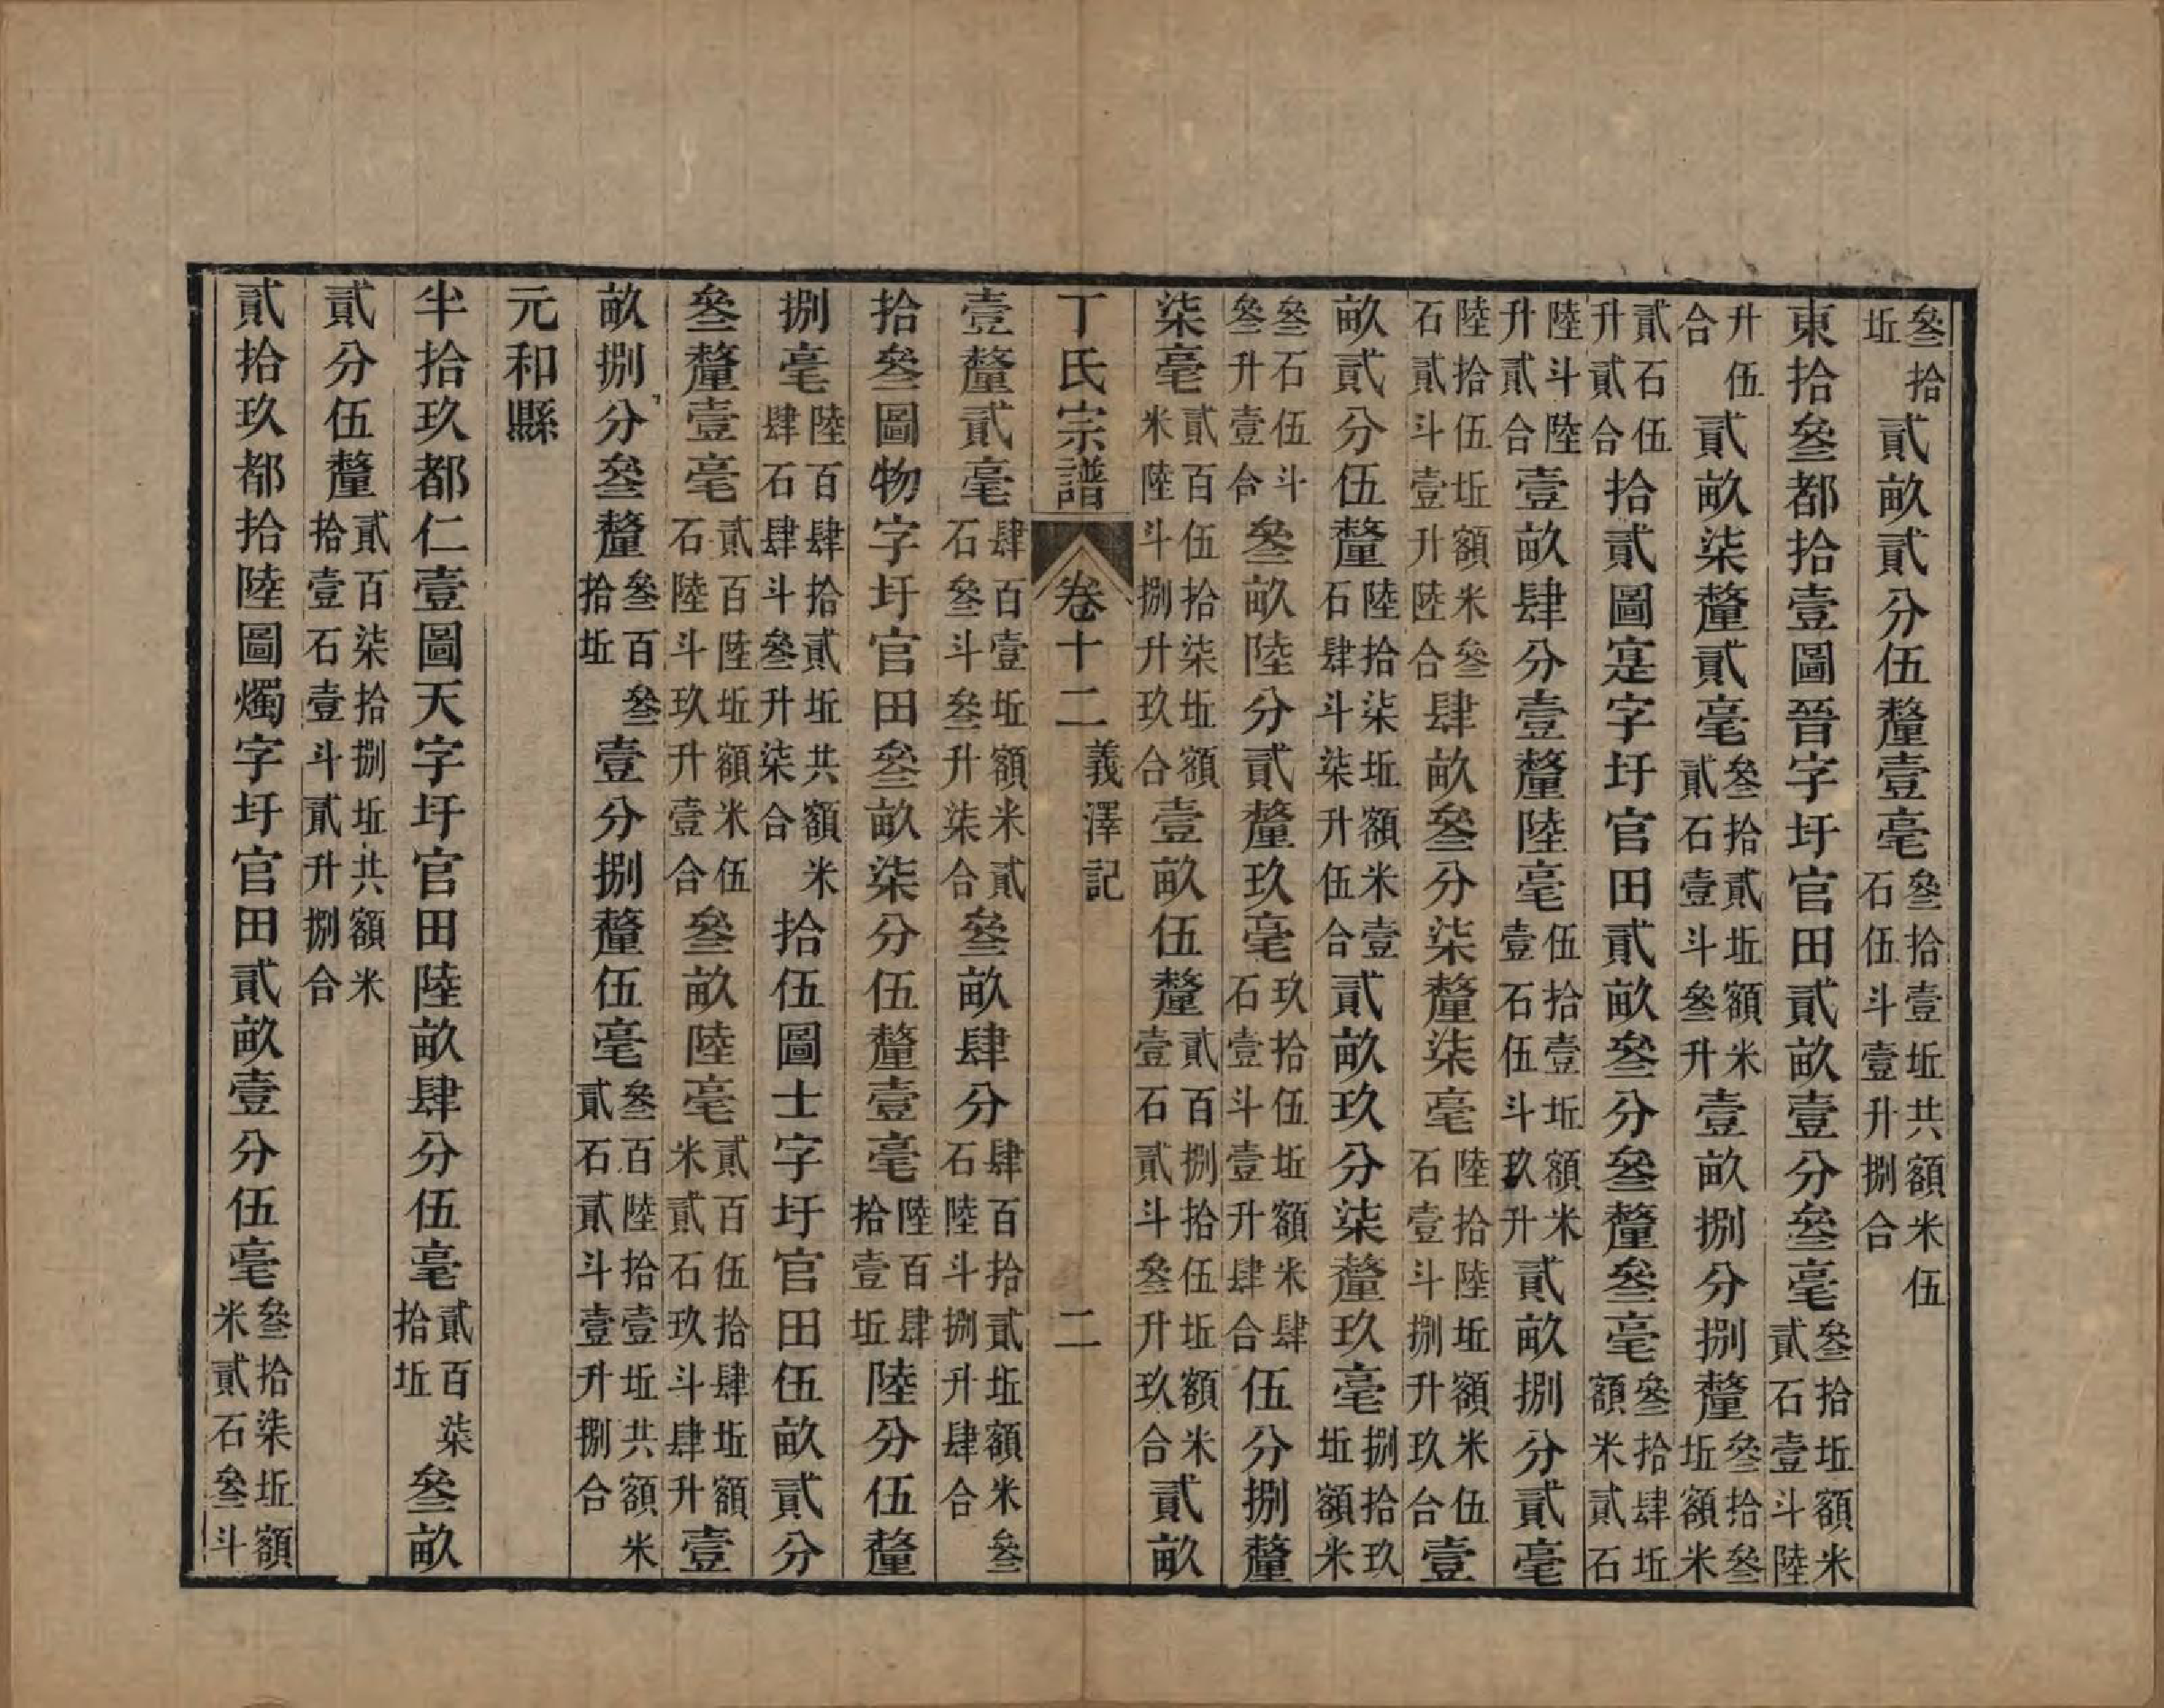 叁拾坵貳畝貳分伍釐壹毫叁拾壹坵共額米伍石伍斗壹升捌合
東拾叁都拾壹圖晉字圩官田貳畝壹分叁毫叁拾坵額米貳石壹斗陸
升伍合貳畝柒釐貳毫叁拾貳坵額米貳石壹斗叁升壹畝捌分捌釐叁拾叁坵額米
貳石伍升貳合拾貳圖寔字圩官田貳畝叁分叁釐叁毫叁拾肆坵額米貳石
陸斗陸升貳合壹畝肆分壹釐陸毫伍拾壹坵額米壹石伍斗玖升貳畝捌分貳毫
陸拾伍坵額米叁石貳斗壹升陸合肆畝叁分柒釐柒毫陸拾陸坵額米伍石壹斗捌升玖合壹
畝貳分伍釐陸拾柒坵額米壹石肆斗柒升伍合貳畝玖分柒釐玖毫捌拾玖坵額米
叁石伍斗叁升壹合叁畝陸分貳釐玖毫玖拾伍坵額米肆石壹斗壹升肆合伍分捌釐
柒毫貳百伍拾柒坵額米陸斗捌升玖合壹畝伍釐貳百捌拾伍坵額米壹石貳斗叁升玖合貳畝
丁氏宗譜 卷十二 義澤記 二
壹釐貳毫肆百壹坵額米貳石叁斗叁升柒合叁畝肆分肆百拾貳坵額米叁石陸斗捌升肆合
拾叁圖物字圩官田叁畝柒分伍釐壹毫陸百肆拾壹坵陸分伍釐
捌毫陸百肆拾貳坵共額米肆石肆斗叁升柒合拾伍圖士字圩官田伍畝貳分
叁釐壹毫貳百陸坵額米伍石陸斗玖升壹合叁畝陸毫貳百伍拾肆坵額米貳石玖斗肆升壹
畝捌分叁釐叁百叁拾坵壹分捌釐伍毫叁百陸拾壹坵共額米貳石貳斗壹升捌合
元和縣
半拾玖都仁壹圖天字圩官田陸畝肆分伍毫貳百柒拾坵叁畝
貳分伍釐貳百柒拾捌坵共額米拾壹石壹斗貳升捌合
貳拾玖都拾陸圖燭字圩官田貳畝壹分伍毫叁拾柒坵額米貳石叁斗